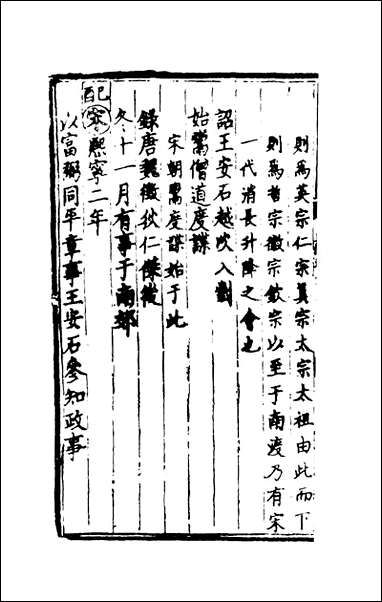 則爲英宗仁宗真宗太宗太祖由此而下
則爲哲宗徽宗欽宗以至于南渡乃有宋
一代消長升降之會也
詔王安石越次入對
始鬻僧道度牒
宋朝鬻度牒始于此
錄唐魏徵狄仁傑後
冬十一月有事于南郊
配熙寧二年
以富弼同平章事王安石參知政事